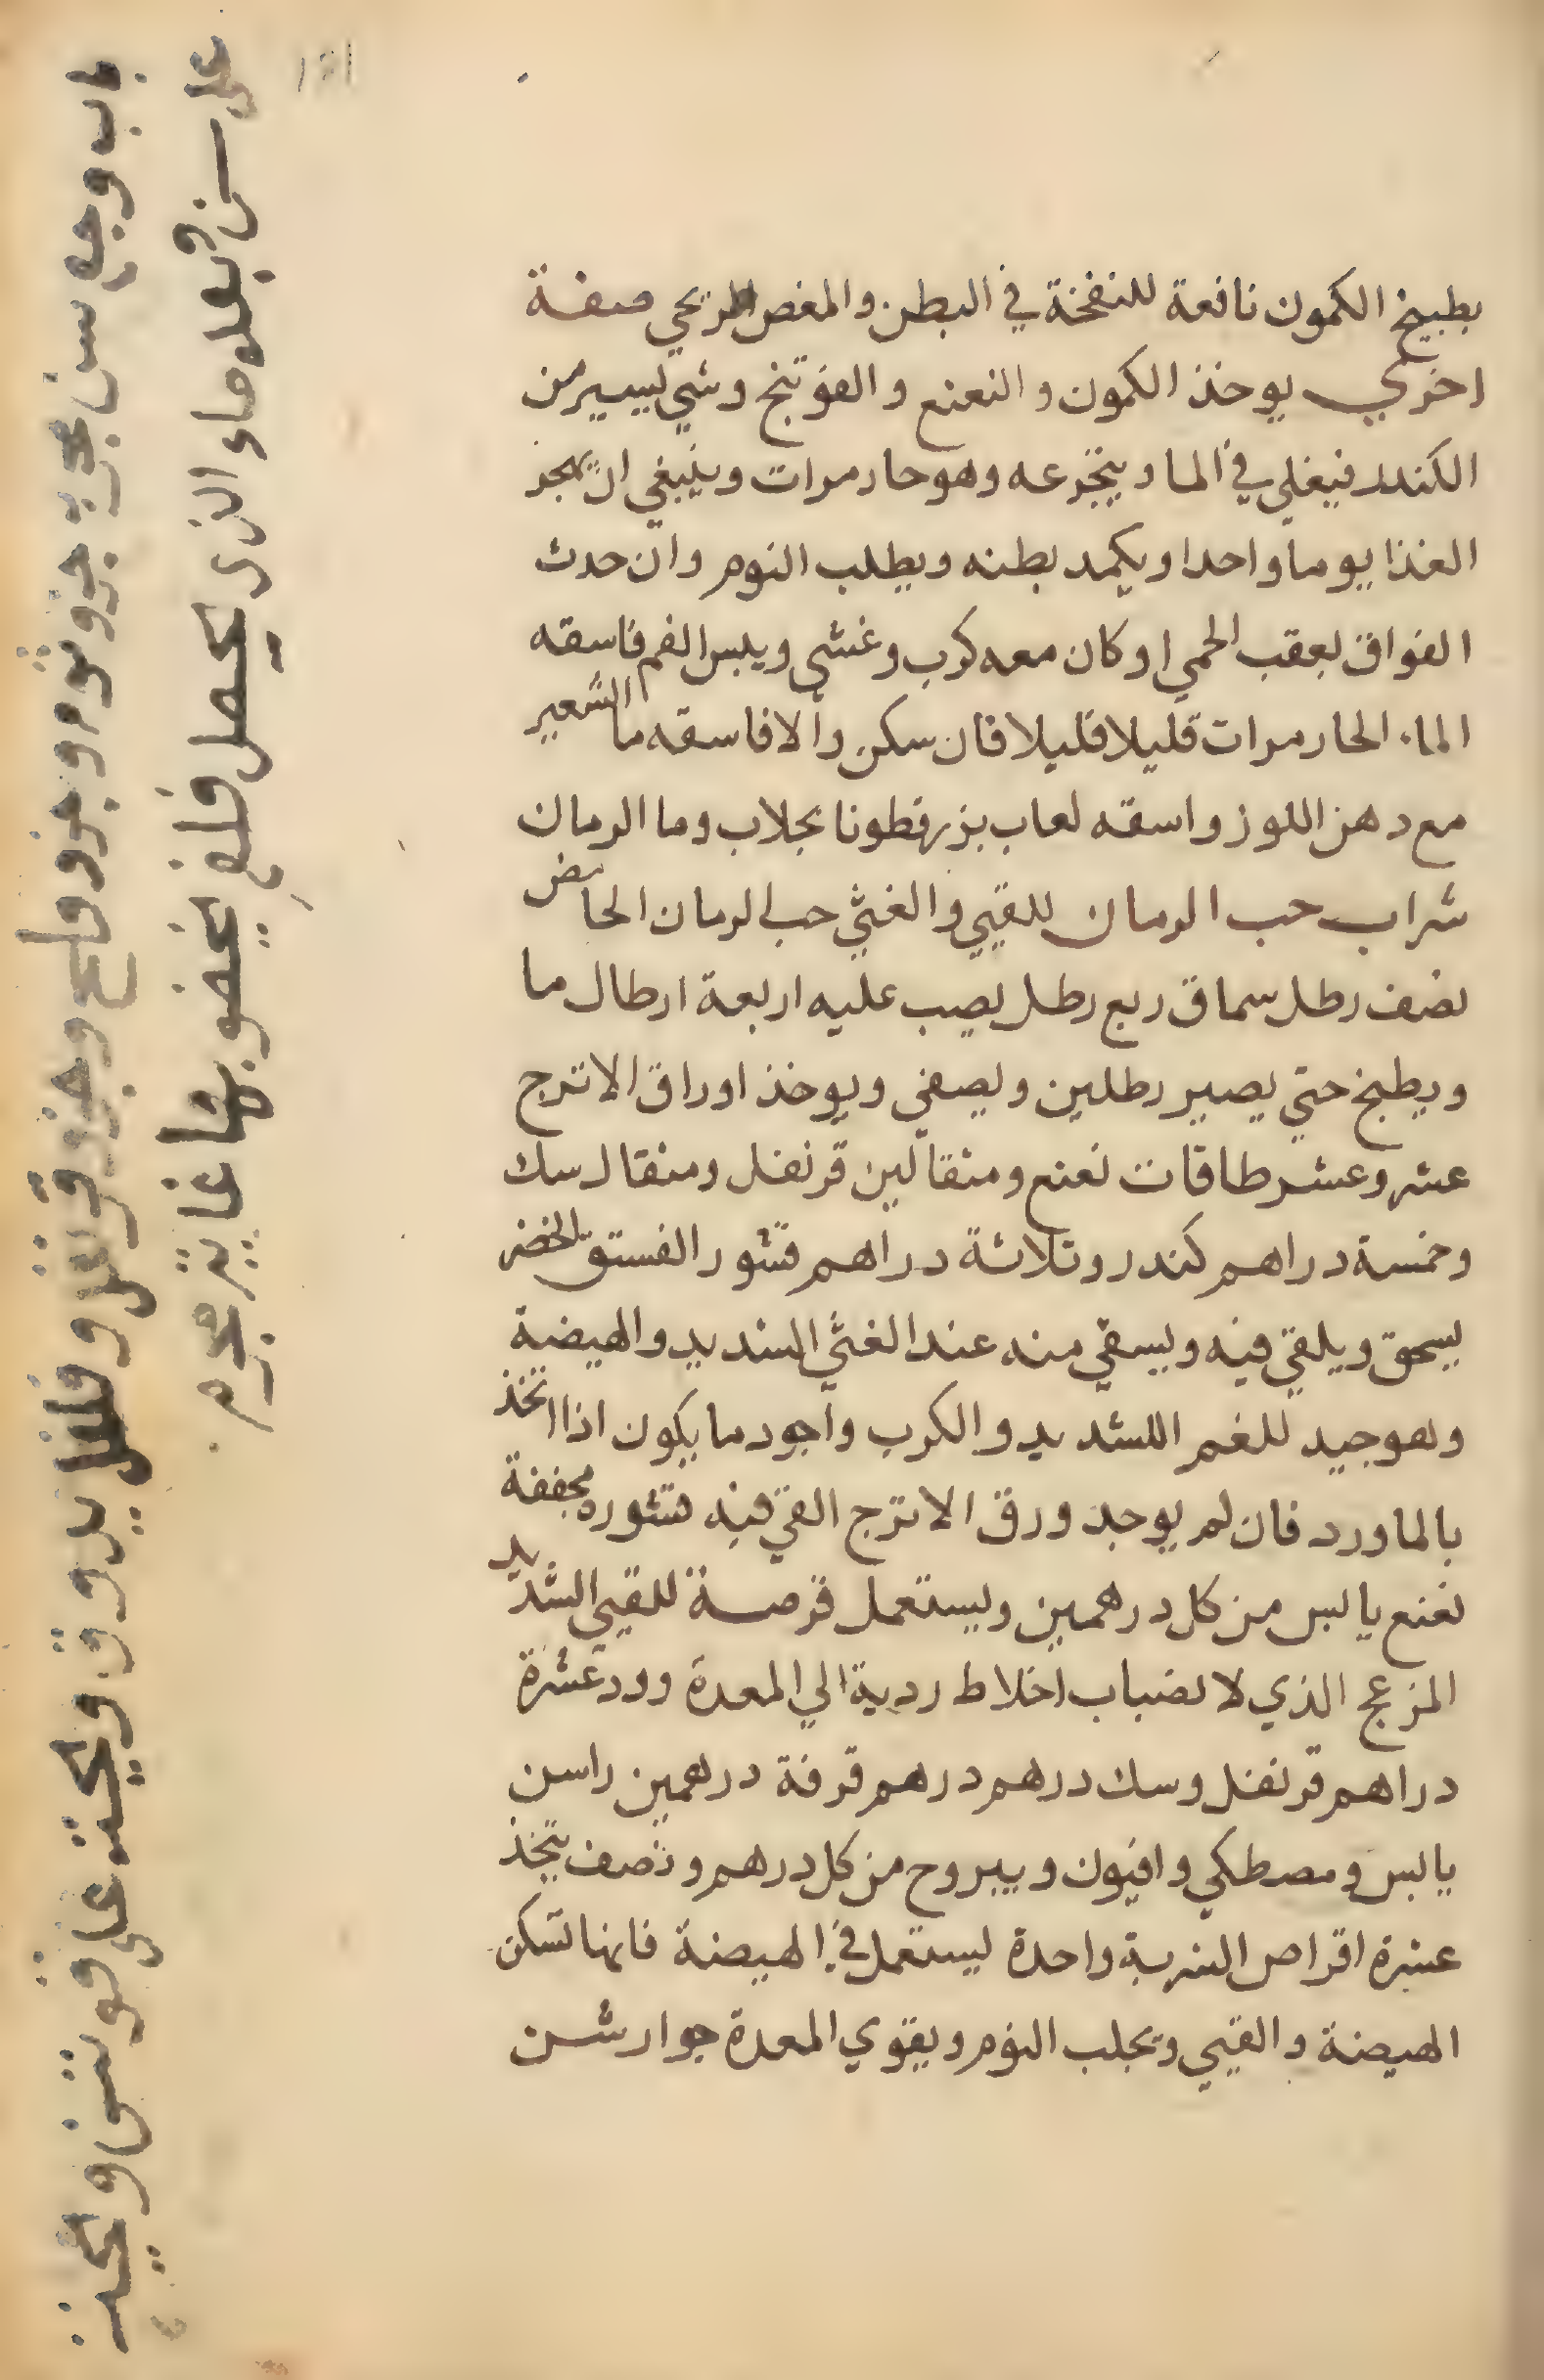 بطبيخ الكمون نافعة للنفخة في البطن والمغص الريحي صفة
اخري يوخذ الكمون والنعنع والفوتنج وشي يسير من
الكندر فيغلي في الما ويتجرعه وهو حار مرات وينبغي ان يهجر
الغذا يوما واحدا ويكمد بطنه ويطلب النوم وان حدث
الفواق بعقب الحمي او كان معه كرب وغشي ويبس الفم فاسقه
الماء الحار مرات قليلا قليلا فان سكن والا فاسقه ما الشعير
مع دهن اللوز واسقه لعاب بزرقطونا بجلاب وما الرمان
شراب حب الرمان للقيي والغثي حب الرمان الحامض
نصف رطل سماق ربع رطل يصب عليه اربعة ارطال ما
ويطبخ حتي يصير رطلين ويصفي ويوخذ اوراق الاترج
عشر وعشر طاقات نعنع ومثقالين قرنفل ومثقال سك
وخمسة دراهم كندر وثلاثة دراهم قشور الفستق الخضر
يسحق ويلقي فيه ويسقي منه عند الغثي الشديد والهيضة
وهو جيد للغم الشديد والكرب واجود ما يكون اذا اتخذ
بالماورد فان لم يوجد ورق الاترج القي فيه قشوره مجففة
نعنع يابس من كل درهمين ويستعمل قرصة للقيي الشديد
المزعج الذي لانصباب اخلاط ردية الي المعدة وورد عشرة
دراهم قرنفل وسك درهم درهم قرفة درهمين راسن
يابس ومصطكي وافيون ويبروح من كل درهم ونصف يتخذ
عشرة اقراص الشربة واحدة يستعمل في الهيضة فانها تسكن
الهيضة والقيي وتجلب النوم ويقوي المعدة جوارشن
باب وجع سن مجرب جزو ثوم وجزو وجزو قرنفل وفلفل يدق ويحته علي
على سن وبعله وماء الذي يحصل فلفع يخضوبها غاية مجرب